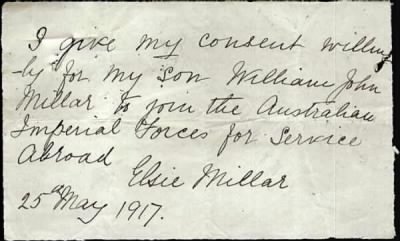 I give my consent willing
-ly for my son William John
Millar to join the Australian
Imperial Forces for Service
Abroad
Elsie Millar
25th May 1917.